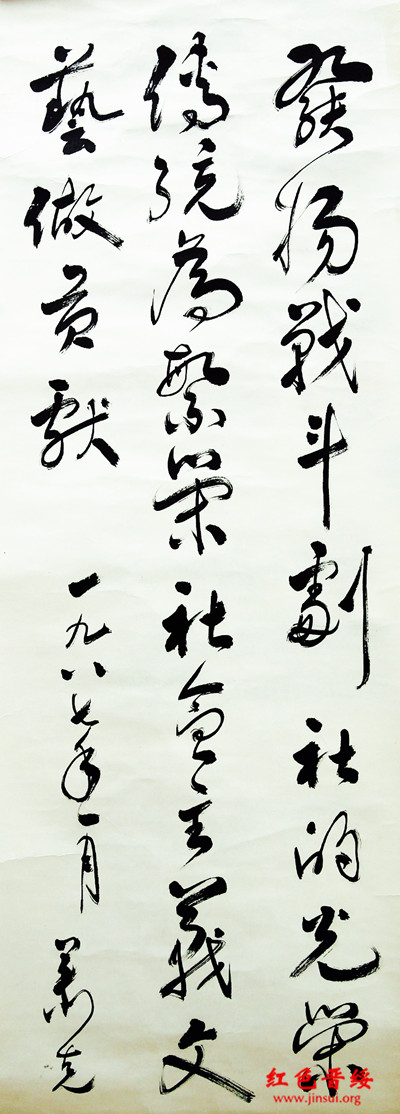 發扬戰斗劇社的光榮
傳統為繁榮社會主義文
藝做贡獻
一九八七年一月 萧克
红色晋绥
www.jinsui.org